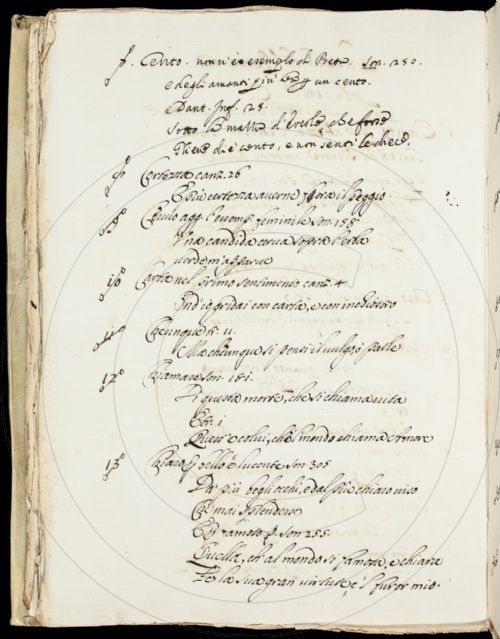 Cento. non vi è esempio di Petr. Son. 250.
e degli amanti più un cento.
e Dant. Inf. 25.
Sotto la mazza d'Ercole che forse
Gliene diè cento, e non sentì le diece.
Certezza canz. 26
E più certezza averne fora il peggio
Cervio agg. l'essemp. feminile son. 158
Una candida cerva sopra l'erba
verde m'apparve
Carta nel primo sentimento canz. 4
Ond'io gridai con carta, e con inchiostro
11. Chiunque 11.
Ma chiunque si pensi il vulgo, o parle
12. Chiamare son. 181.
Di questa morte, che si chiama vita
1
Quest'è colui, che'l mondo chiama Amore
13. Chiaro bello è lucente son. 305
Da più begli occhi, e dal più chiaro viso
Che mai splendesse
son 255
Quella, ch'al mondo sì famosa, e chiara
Fe la sua gran virtute, e'l furor mio.